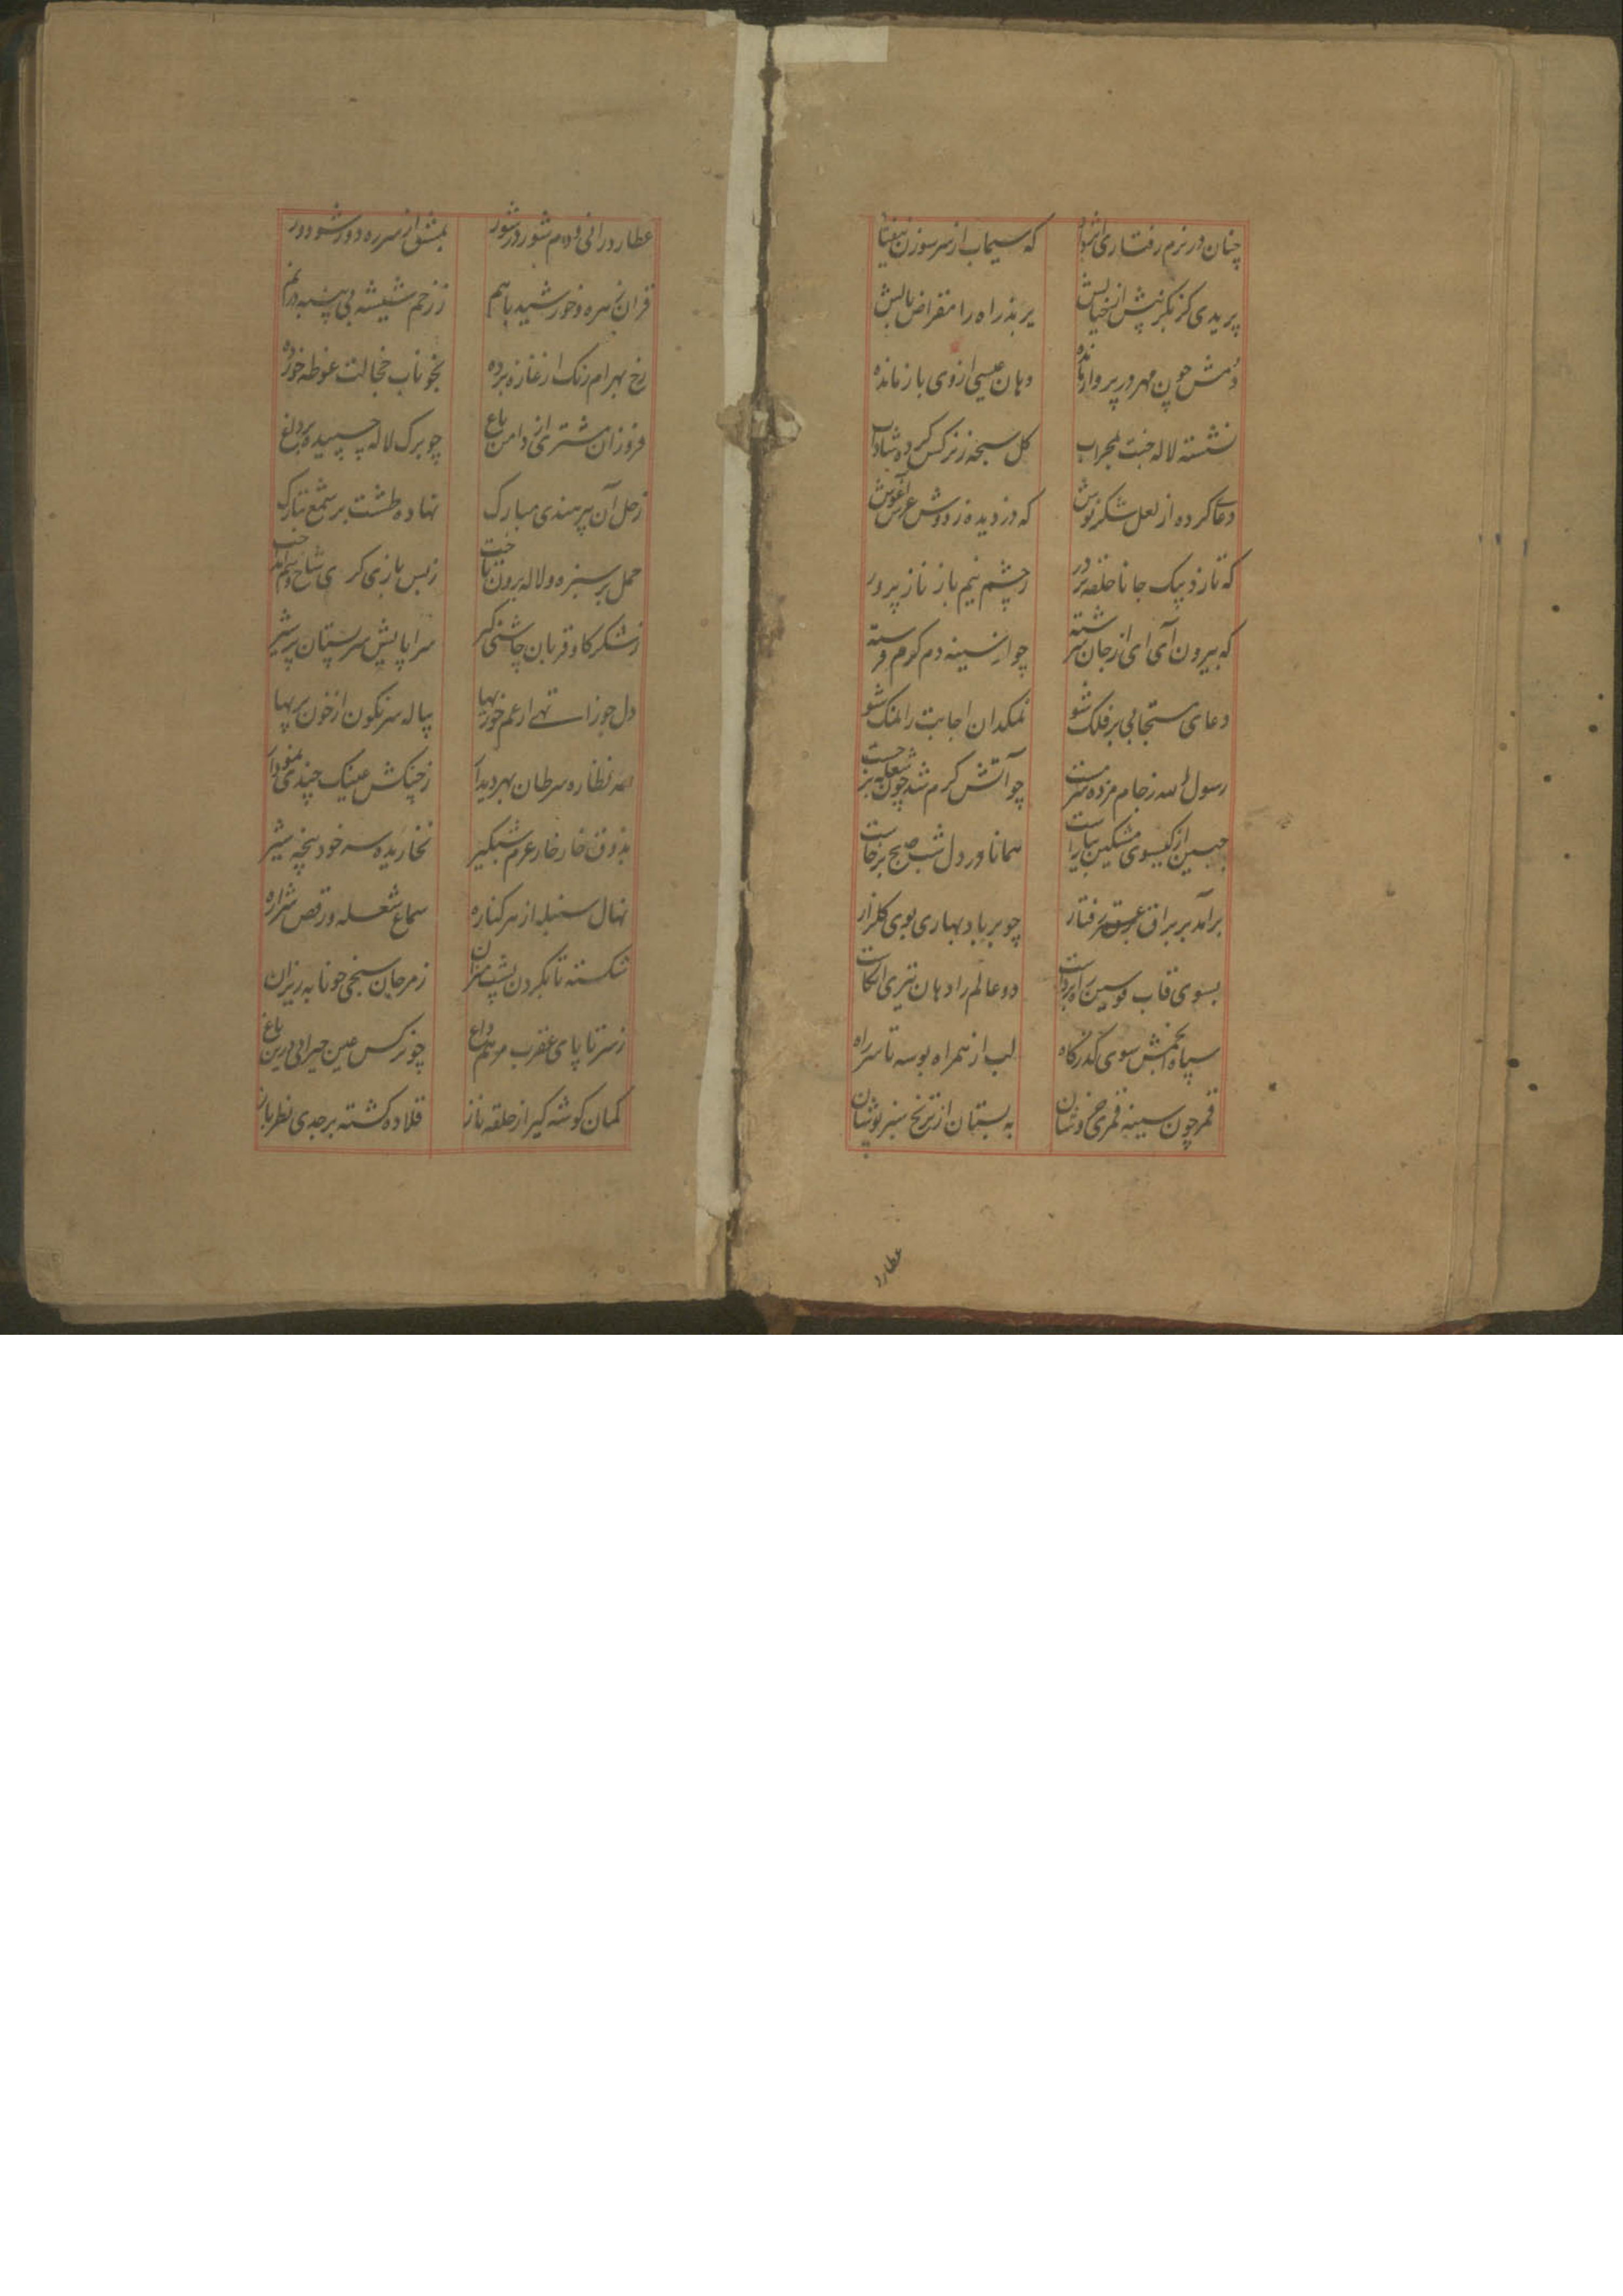 چنان در نرم رفتاری
که سیماب از سر سوزن
پریدی کز نکر پیش از خیالش
بریدی راه را مقراض بالش
دمش چون مهر در پرواز مانده
دهان عیسی ازوی باز مانده
نشسته لاله جنت بمحراب
کل سبحه ز نرکس کرده شاداب
دعای کرده از لعل شکر نوش
که دزدیده ز دوش عرش آغوش
که تا زد پیک جانان حلقه بر در
ز چشم نیم باز ناز پرور
که بیرون آی ای از جان سرشته
چو از سینه دم کرم فرشته
دعای مستجابی بر فلک شو
نمکدان اجابت را نمک شو
رسول الله ز جام مژده سرمست
چو آتش کرم شد چون شعله بر جست
جبین از کیسوی مشکین بیاراست
همانا در دل شب صبح برخاست
برآمد بر براق برق رفتار
چو بر باد بهاری بوی کلزار
بسوی قاب قوسین راه برداشت
دو عالم را دهان تیری انکاشت
سپاه انجمش سوی کذرکاه
لب از همراه بوسه تا سر راه
قمر چون سینه قمری خروشان
به بستان از ترنج سبز پوشان
عطارد
عطارد رانی و دم شور در شور
بمشق از سر ره دور شو دور
قران زهره و خورشید باهم
ز زخم شیشه بی پنبه در نم
رخ بهرام رنک از غازه برده
بخوناب خجالت غوطه خورده
فروزان مشتری از دامن باغ
چو برک لاله چسپیده بر داغ
زحل آن پیر هندی مبارک
نهاده طشت پر شمع بتارک
حمل بر سبزه و لاله برون تاخت
ز بس بازی کری شاخ و سم انداخت
ز شکر کاو قربان چاشنی کیر
سراپایش سر پستان پر شیر
دل جوزا تهی از غم خوربها
پیاله سرنکون از خون پربها
نظاره سرطان بهر دیدار
ز چنکش عینک چندی نمودار
بذوق خار خار عزم شبکیر
نخاریده سر خود پنجه شیر
نهال سنبله از هر کناره
سماع شعله و رقص شراره
شکسته تا بکردن پشت میزان
ز مرجان سنجی خونابه ریزان
ز سر تا پای عقرب مرهم داغ
چو نرکس عین حیرانی درین باغ
کمان کوشه کیر از حلقه ناز
قلاده کشته بر جدی نظر باز